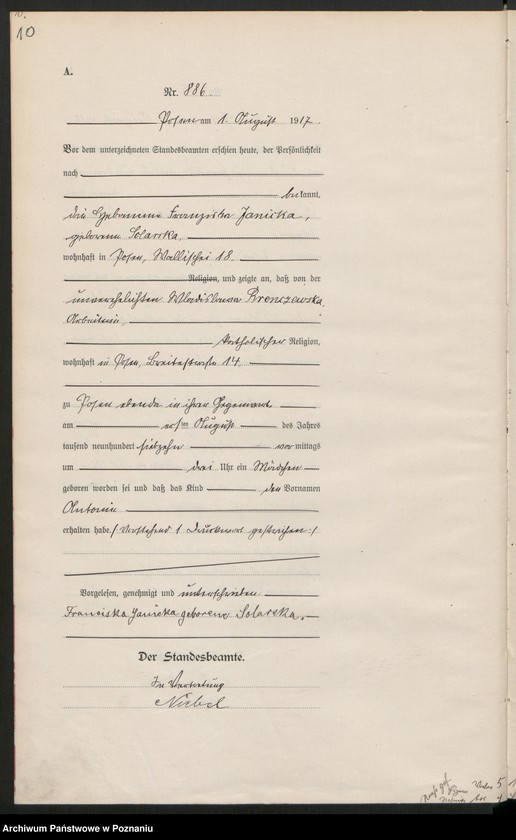 10
A.
Nr. 886.
Posen am 1. August 1917.
Vor dem unterzeichneten Standesbeamten erschien heute, der Persönlichkeit
nach
bekannt,
die Hebamme Franziska Janicka,
geborene Solarska,
wohnhaft in Posen, Wallischei 18.
Religion, und zeigte an, daß von der
unverehelichten Wladislawa Brenczewska,
Arbeiterin,
katholischer Religion,
wohnhaft in Posen, Breitestraße 14
zu Posen ebenda in ihrer Gegenwart
am ersten August des Jahres
tausend neunhundert siebzehn vormittags
um drei Uhr ein Mädchen
geboren worden sei und daß das Kind den Vornamen
Antonie
erhalten habe. /: Vorstehend 1 Druckwort gestrichen :/
Vorgelesen, genehmigt und unterschrieben
Franciska Janicka geborene Solarska.
Der Standesbeamte.
In Vertretung
Archiwum Państwowe w Poznaniu